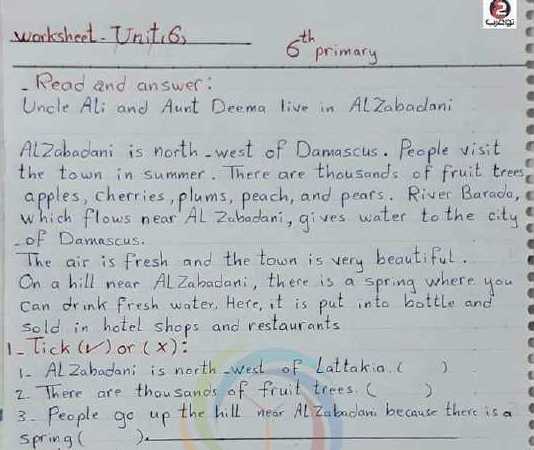 توفرب
worksheet - Unit, 6,
6th primary
- Read and answer:
Uncle Ali and Aunt Deema live in AlZabadani
AlZabadani is north-west of Damascus. People visit
the town in summer. There are thousands of fruit trees,
apples, cherries, plums, peach, and pears. River Barada,
which flows near AL Zabadani, gives water to the city
- of Damascus.
The air is fresh and the town is very beautiful.
On a hill near AlZabadani, there is a spring where you
can drink fresh water. Here, it is put into bottle and
sold in hotel shops and restaurants
1- Tick (✓) or (x):
1- AlZabadani is north-west of Lattakia. ( )
2. There are thousands of fruit trees. ( )
3- People go up the hill near AlZabadani because there is a
spring ( ).